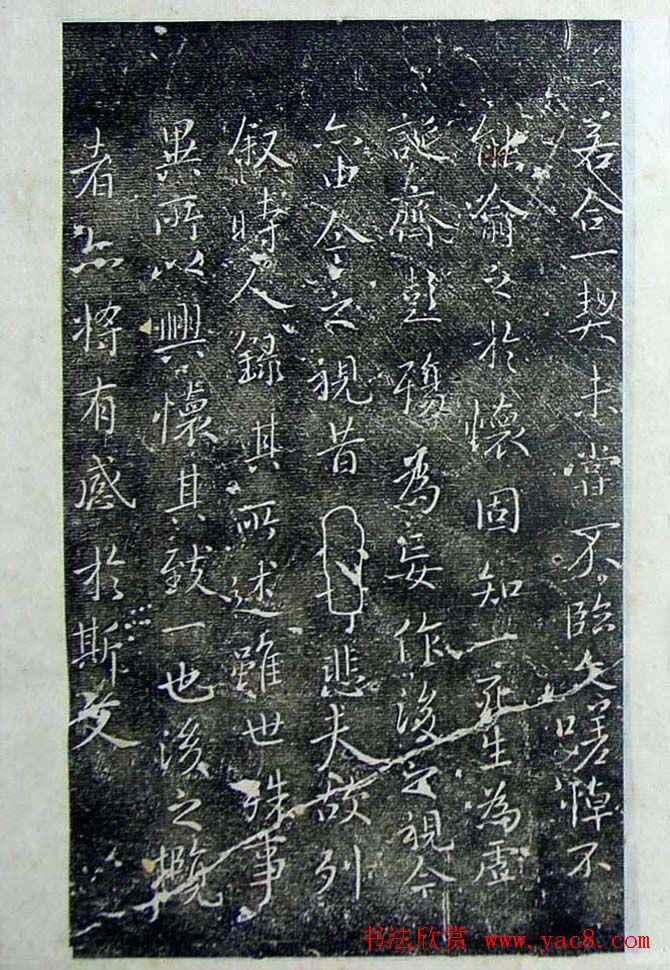 若合一契未嘗不臨文嗟悼不
能喻之於懷固知一死生為虛
誕齊彭殤為妄作後之視今
亦由今之視昔悲夫故列
敘時人錄其所述雖世殊事
異所以興懷其致一也後之攬
者亦將有感於斯文
书法欣赏 www.yac8.com